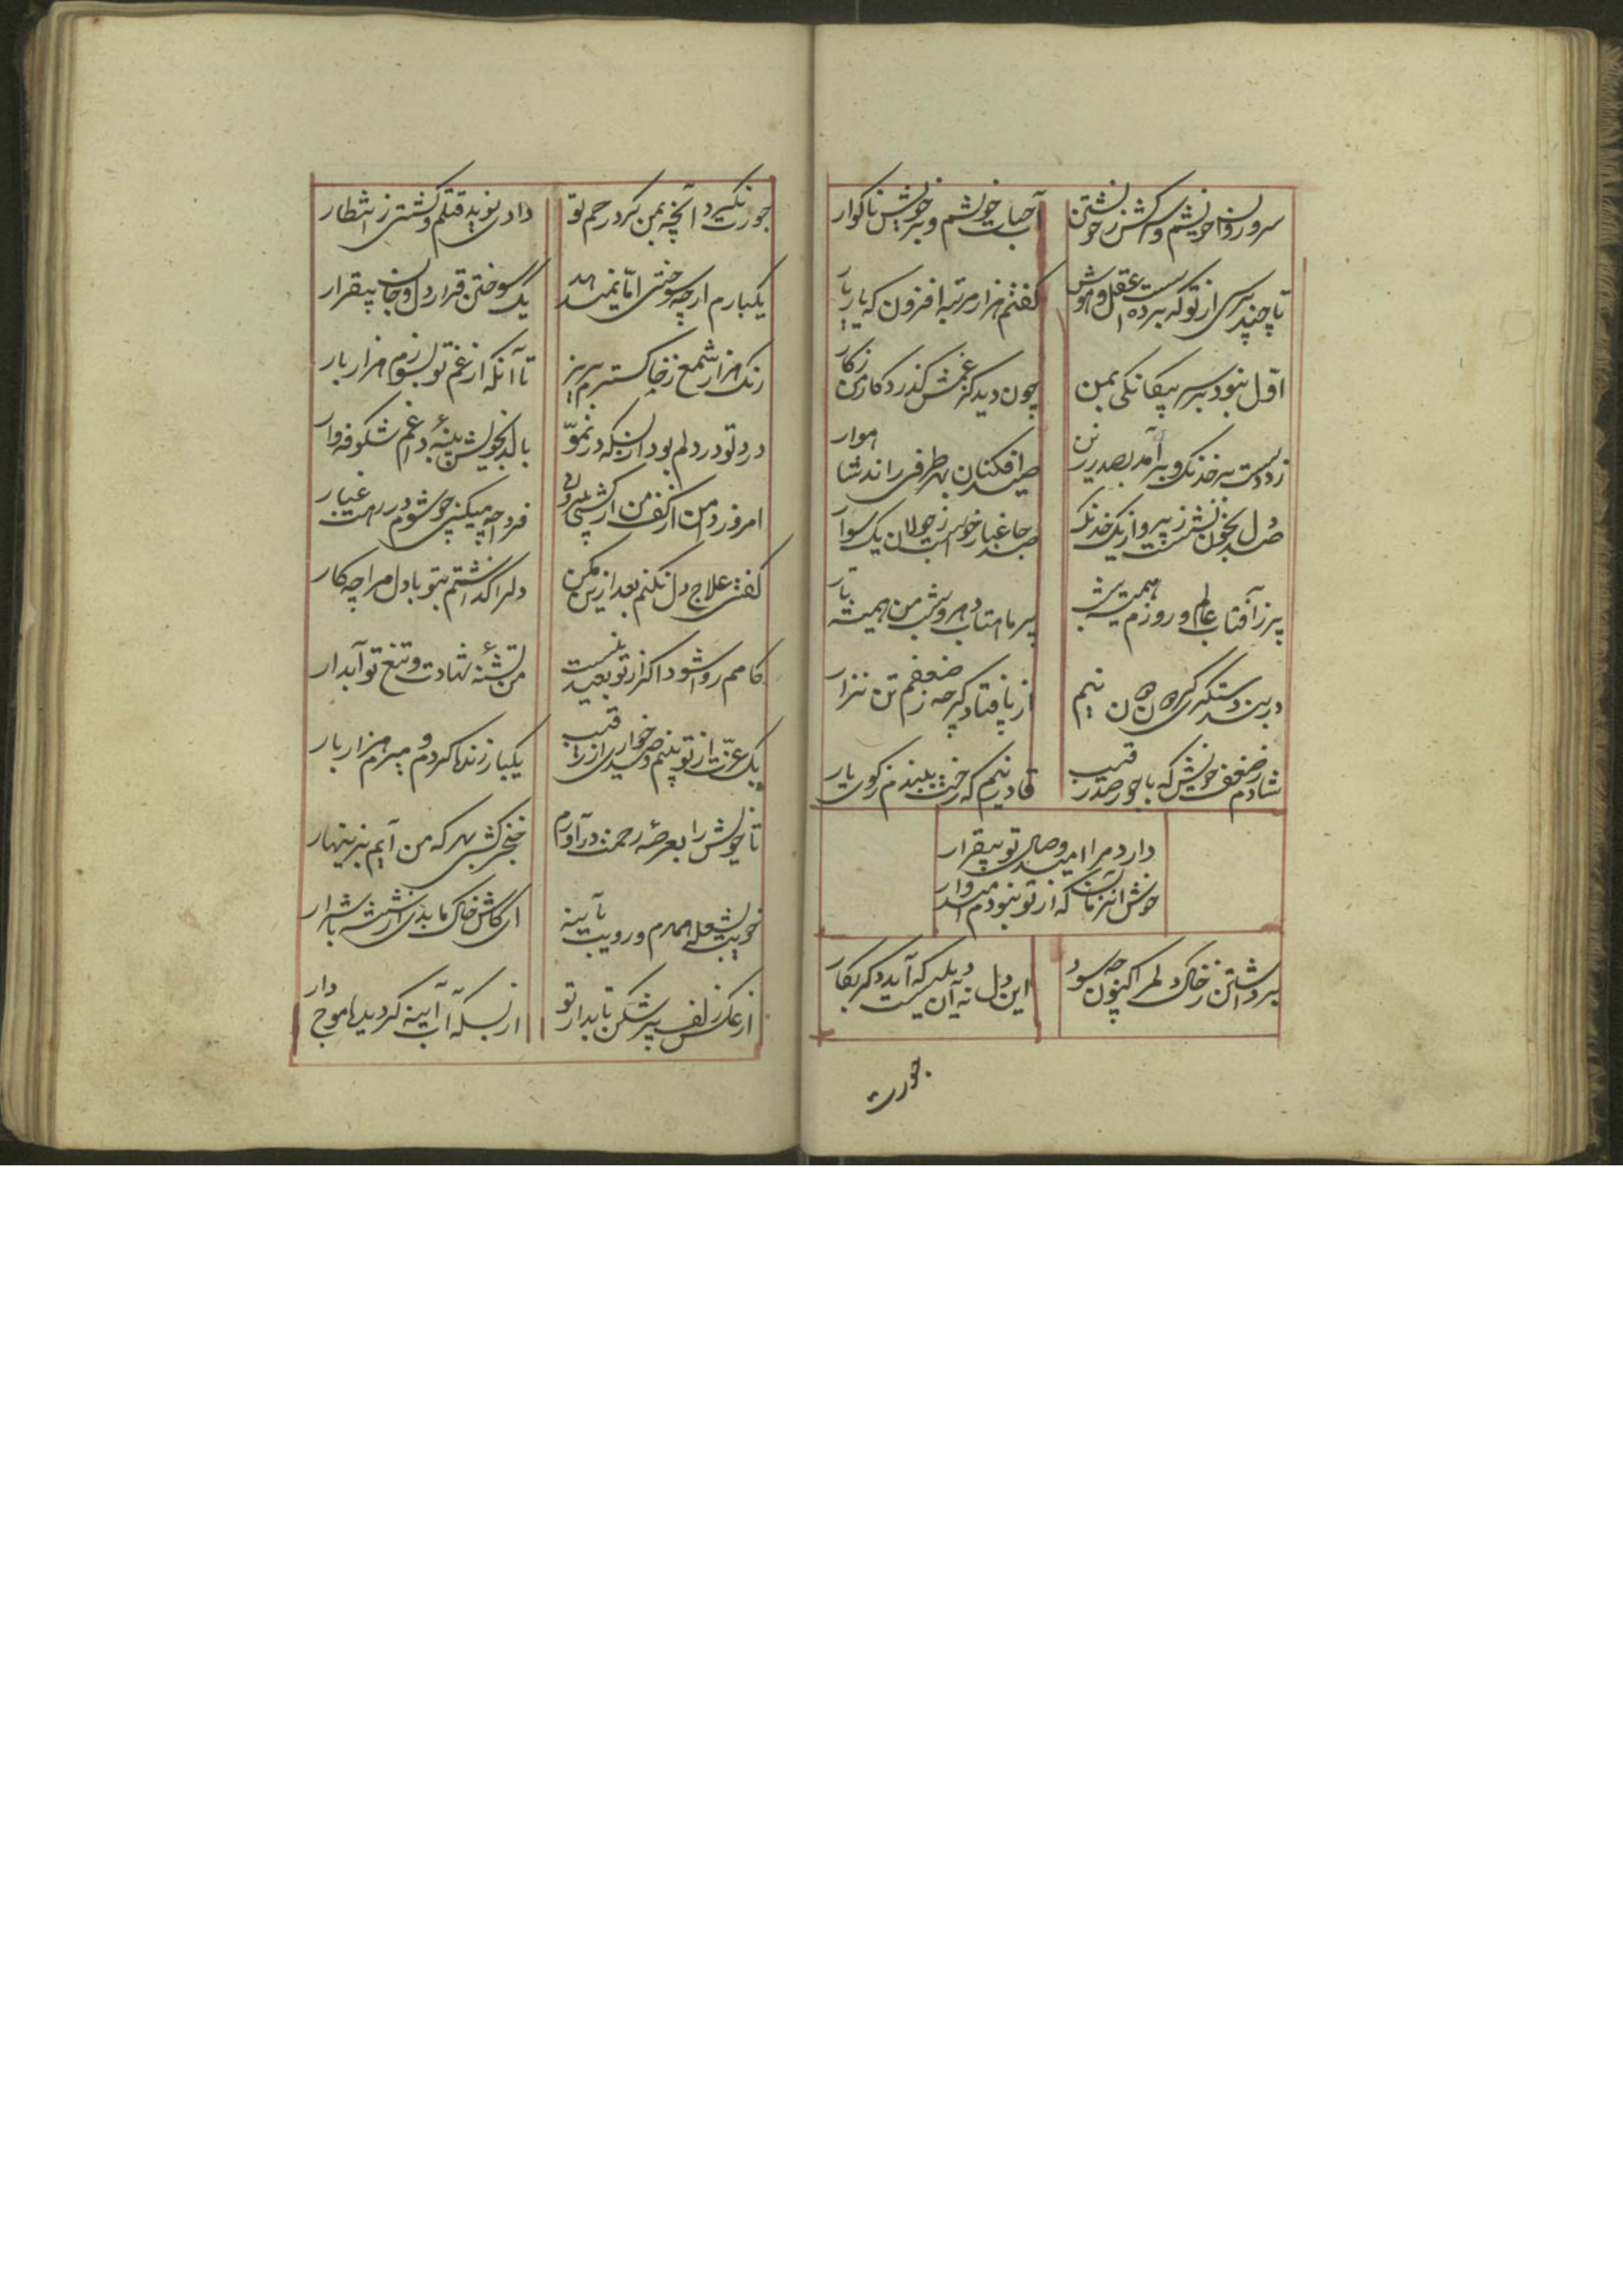 سرو روان خویشم و سرکش ز خویشتن
آب حیات خویشم و بر خویش ناگوار
تا چند پرسی از تو که برده است عقل و هوش
گفتم هزار مرتبه افزون که یار یار
اول نبود بر سر بیگانگی بمن
چون دید کز غمش گذرد کار من ز کار
زد دست بر خدنگ و برآمد بصدر زین
صید افکنان بهر طرفی راند شاهوار
صد دل بخون نشست ز پرواز یک خدنگ
صد جا غبار خواست ز جولان یک سوار
پر ز آفتاب عالم و روزم همیشه شب
پر ماهتاب دهر و شب من همیشه تار
در بند دستگیری همرهان نیم
از پا فتاد گرچه ز ضعفم تن نزار
شادم ز ضعف خویش که با جور صد رقیب
قادر نیم که رخت ببندم ز کوی یار
دارد مرا امید وصال تو بیقرار
خوش آنزمان که از تو نبودم امیدوار
برداشتن ز خاک دلم اکنون چه سود
این دل نه آن دلیست که آید دگر بکار
جورت
جورت نکرد آنچه بمن کرد رحم تو
دادی نوید قتلم و کشتی ز انتظار
یکبارم ارچه سوختی اما نمیدهد
یک سوختن قرار دل و جان بیقرار
رنگ هزار شمع ز خاکسترم بریز
تا آنکه از غم تو بسوزم هزار بار
درد تو در دلم بود از بسکه در نمو
بالد بخویش پنبهٔ داغم شکوفه‌وار
امروز دامن از کف من ار کشی ولی
فردا چه میکنی چو شوم در رهت غبار
گفتی علاج دل نکنم بعد ازین مکن
دلرا گذاشتم بتو با دل مرا چه کار
کامم روا شود اگر از تو بعید نیست
من تشنهٔ شهادت و تیغ تو آبدار
یک عزت از تو بینم و صد خواری از رقیب
یکبار زنده گردم و میرم هزار بار
تا خویش را بعرصهٔ رحمت درآورم
خنجر کشی بهر که من آیم بزینهار
خویت بشعله همدم و رویت بآینه
ای کاش خاک ما بدی از شیشه یا شرار
از عکس زلف پرشکن تابدار تو
از بسکه آب آینه گردیده موج‌دار